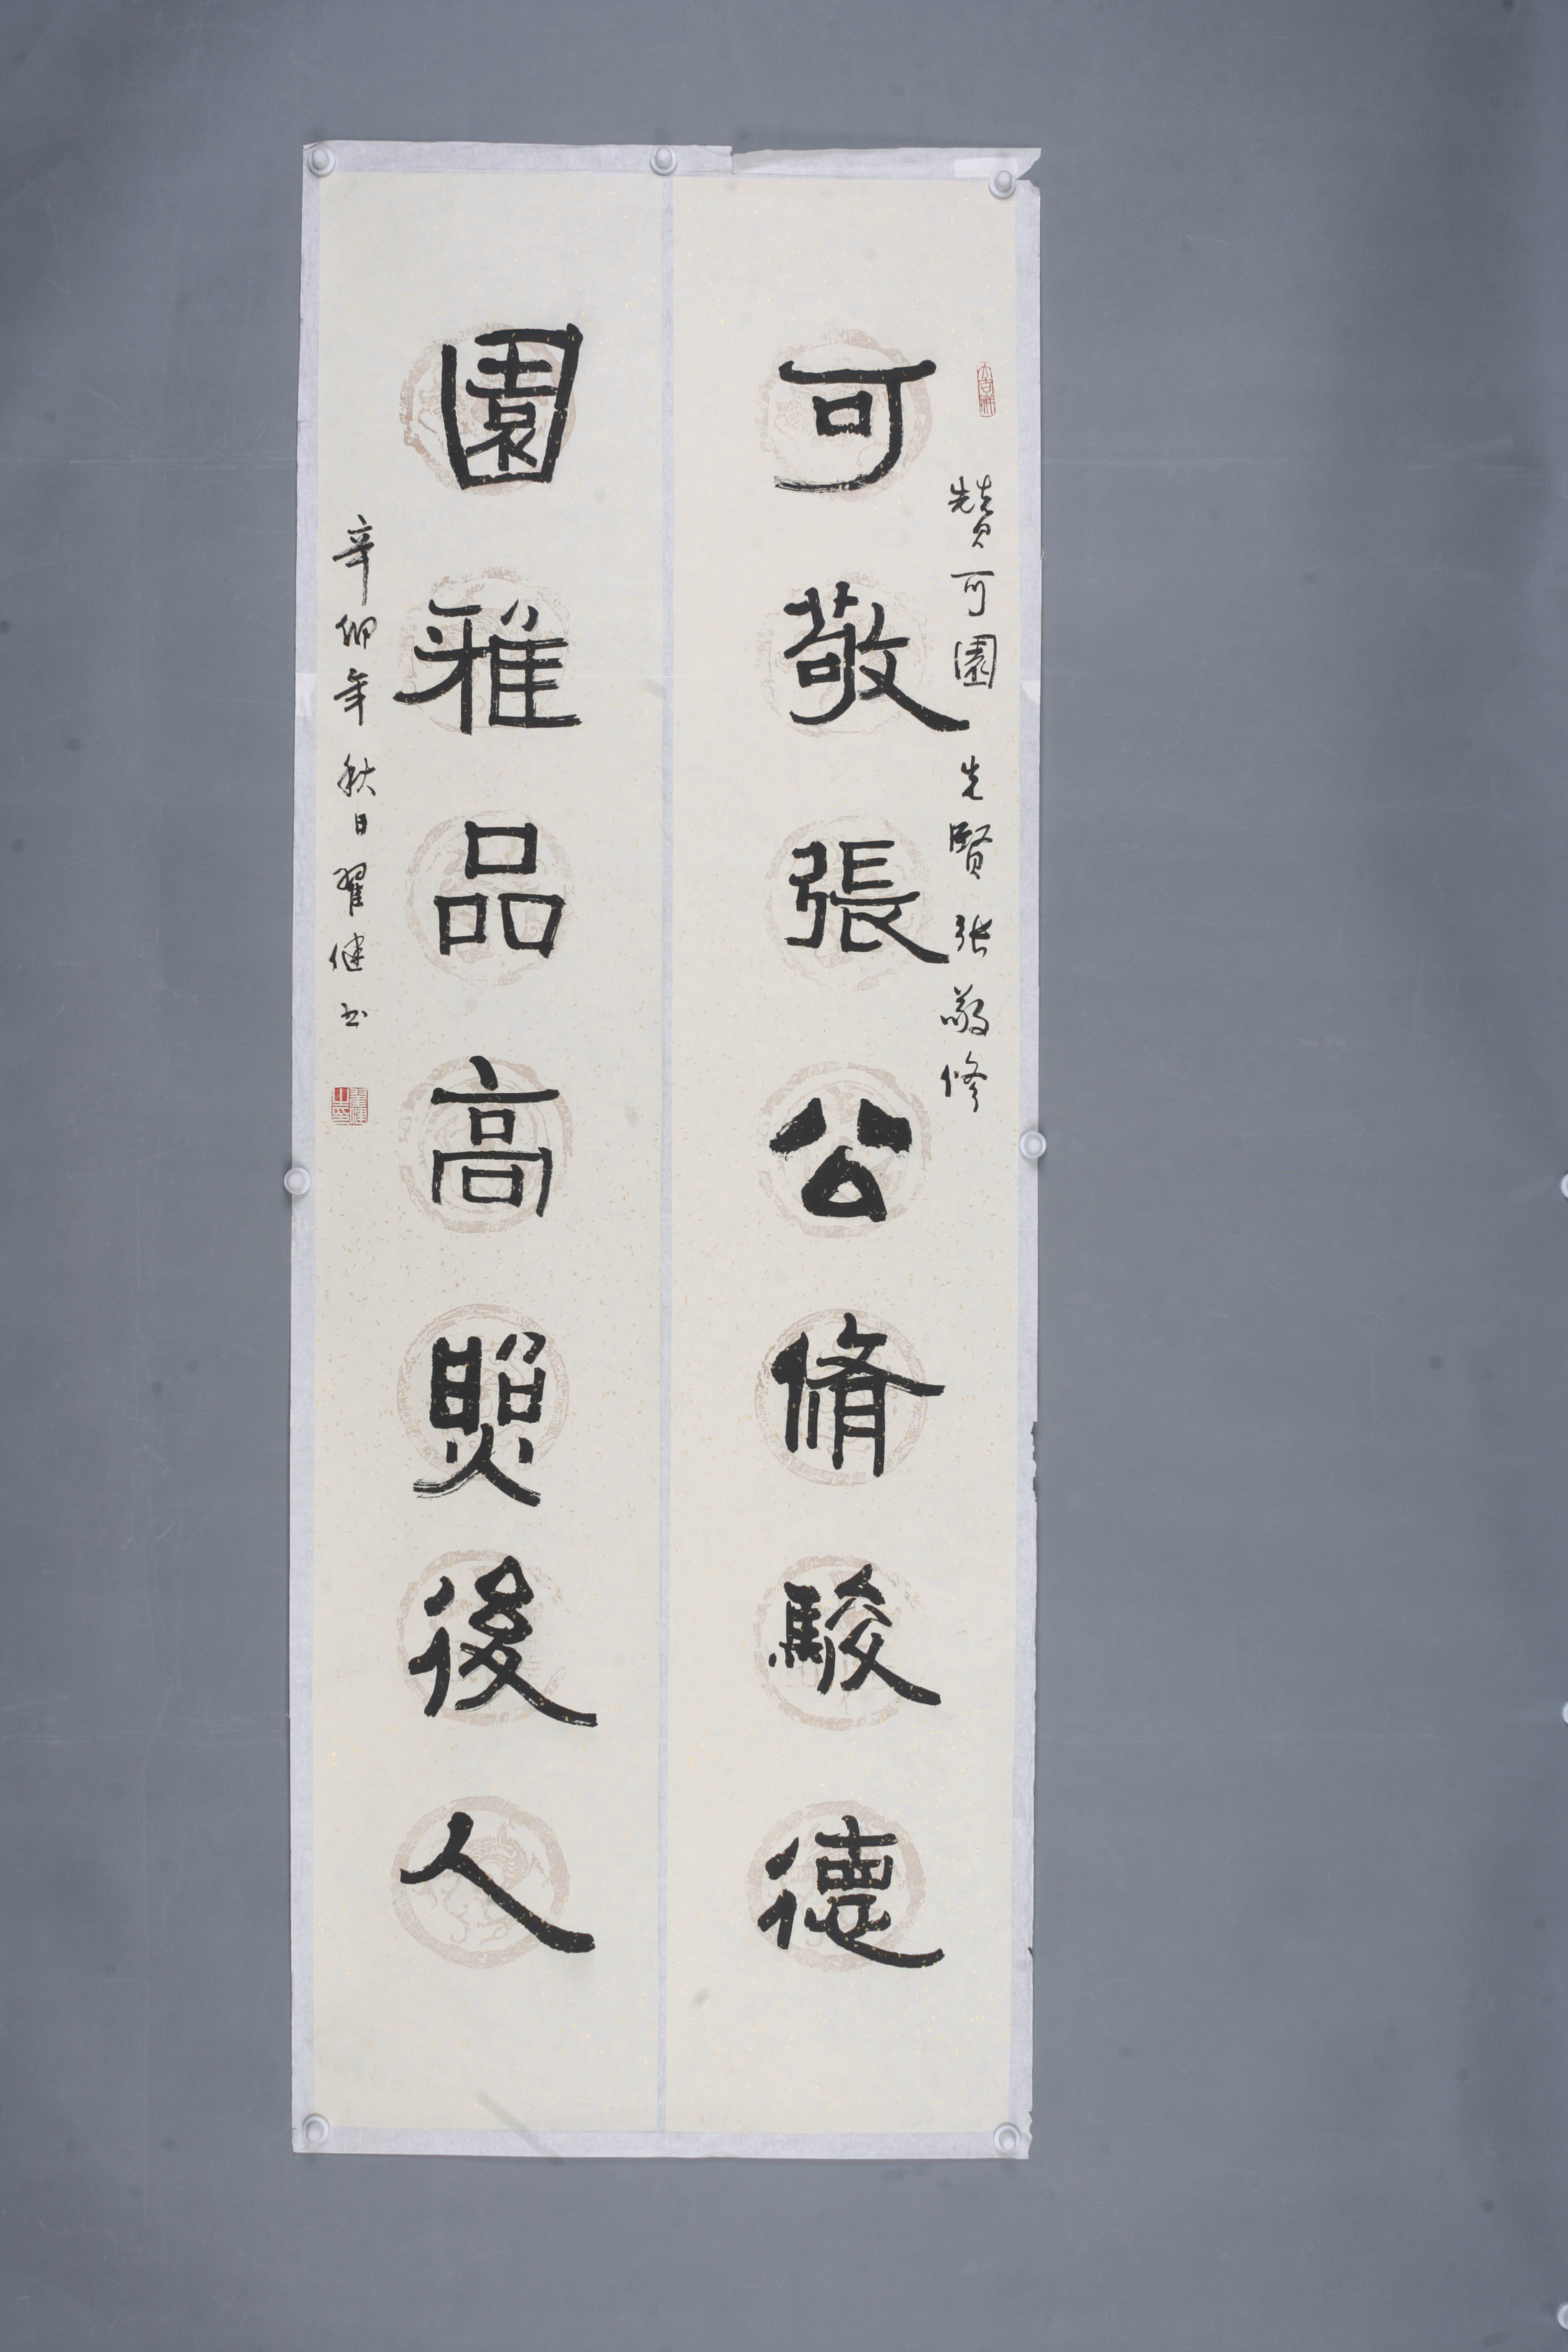 贊可園 先賢张敬修
可敬張公脩駿德
園雅品高照後人
辛卯年秋日翟健书